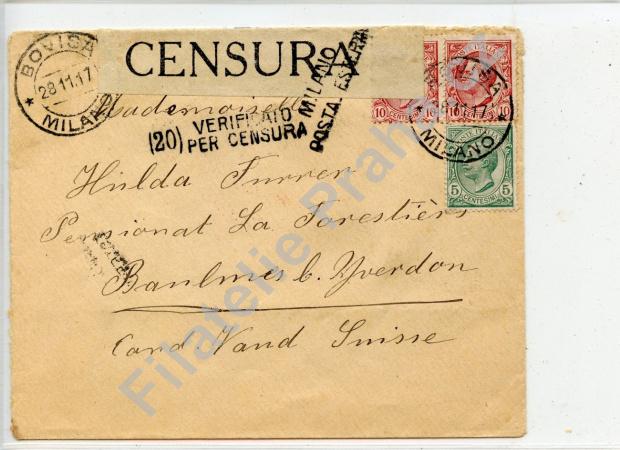 BOVISA
28.11.17
MILANO
CENSURA
MILANO
POSTA ESTERA
(20) VERIFICATO
PER CENSURA
POSTE ITALIANE
10 CENTESIMI 10
10 CENTESIMI 10
BOVISA
28.11.17
MILANO
5 CENTESIMI 5
Mademoiselle
Hulda Furrer
Pensionat La Forestière
Baulmes b. Yverdon
Cand. Vaud Suisse
Filatelie Praha